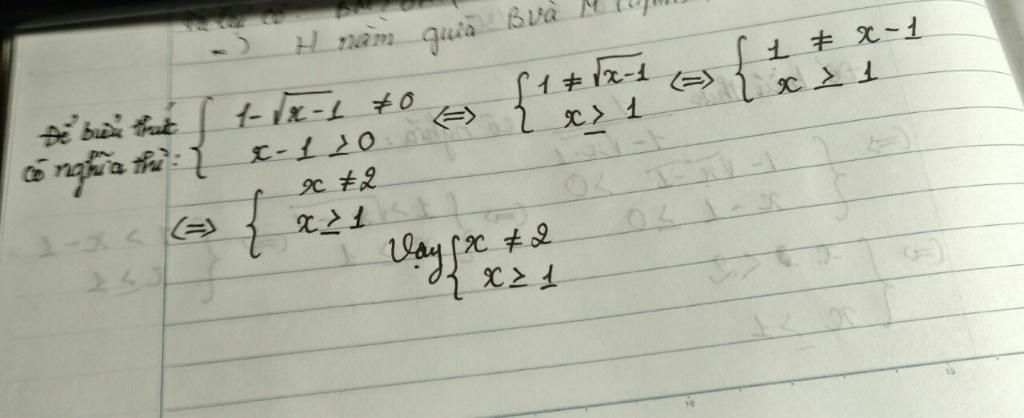 -) H nằm giữa B và M
Để biểu thức có nghĩa thì: { 1 - √x-1 ≠ 0 <=> { 1 ≠ √x-1 <=> { 1 ≠ x - 1
x - 1 ≥ 0 x ≥ 1 x ≥ 1
<=> { x ≠ 2
x ≥ 1
Vậy { x ≠ 2
x ≥ 1
10
15